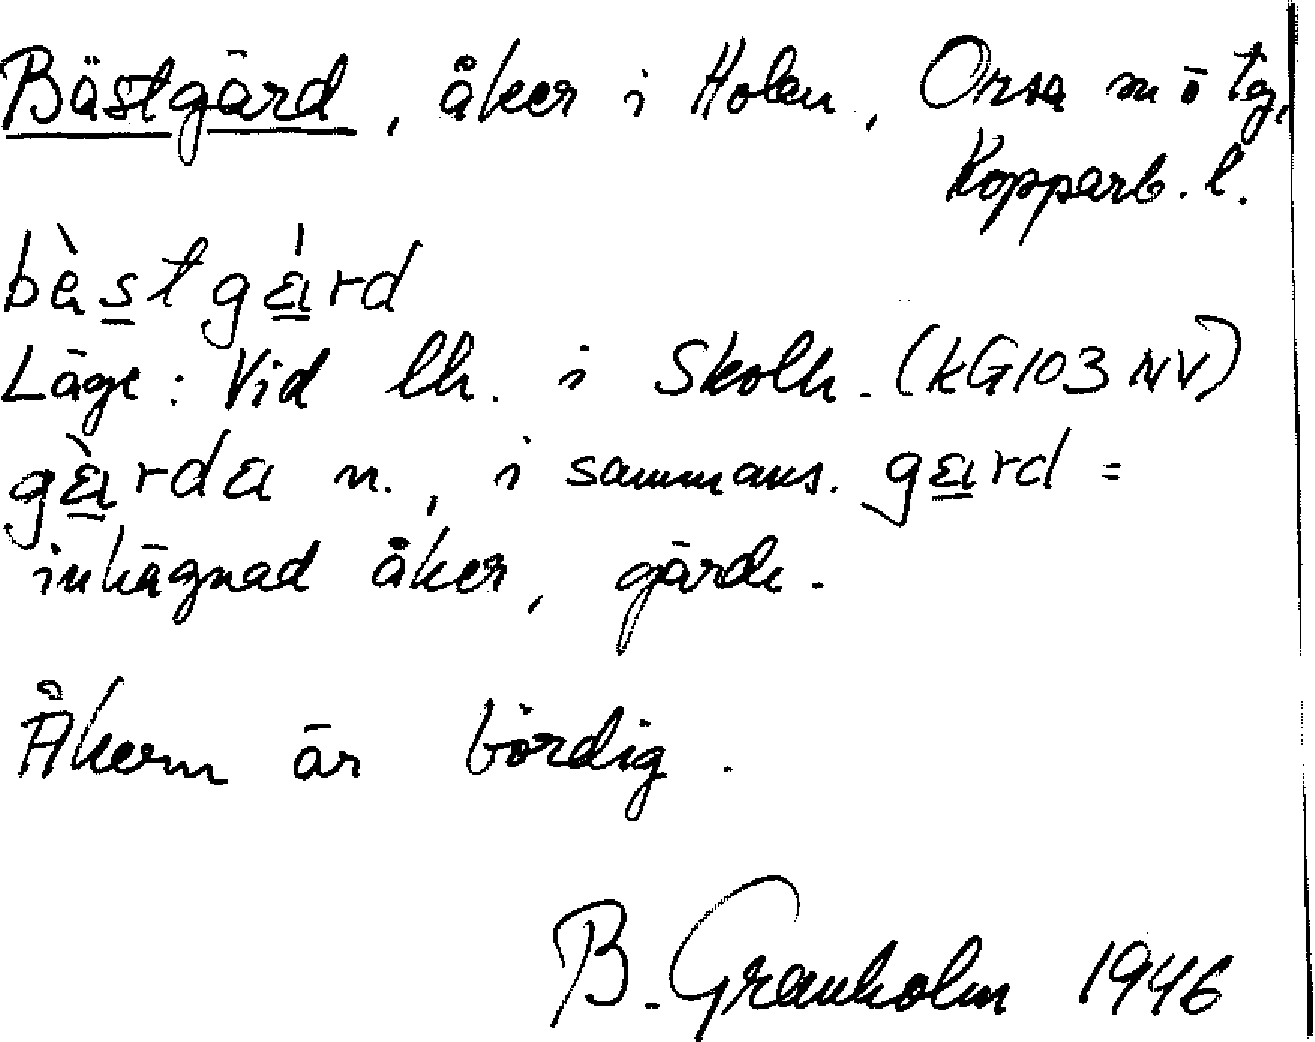 Bästgärd, åker i Holen, Orsa sn o tg,
Kopparb. l.
bὰstgárd
Läge: Vid lh. i Skolh. (KG103 NV)
gὰrda n., i sammans. gard =
inhägnad åker, gärde.
Åkern är bördig.
B. Granholm 1946